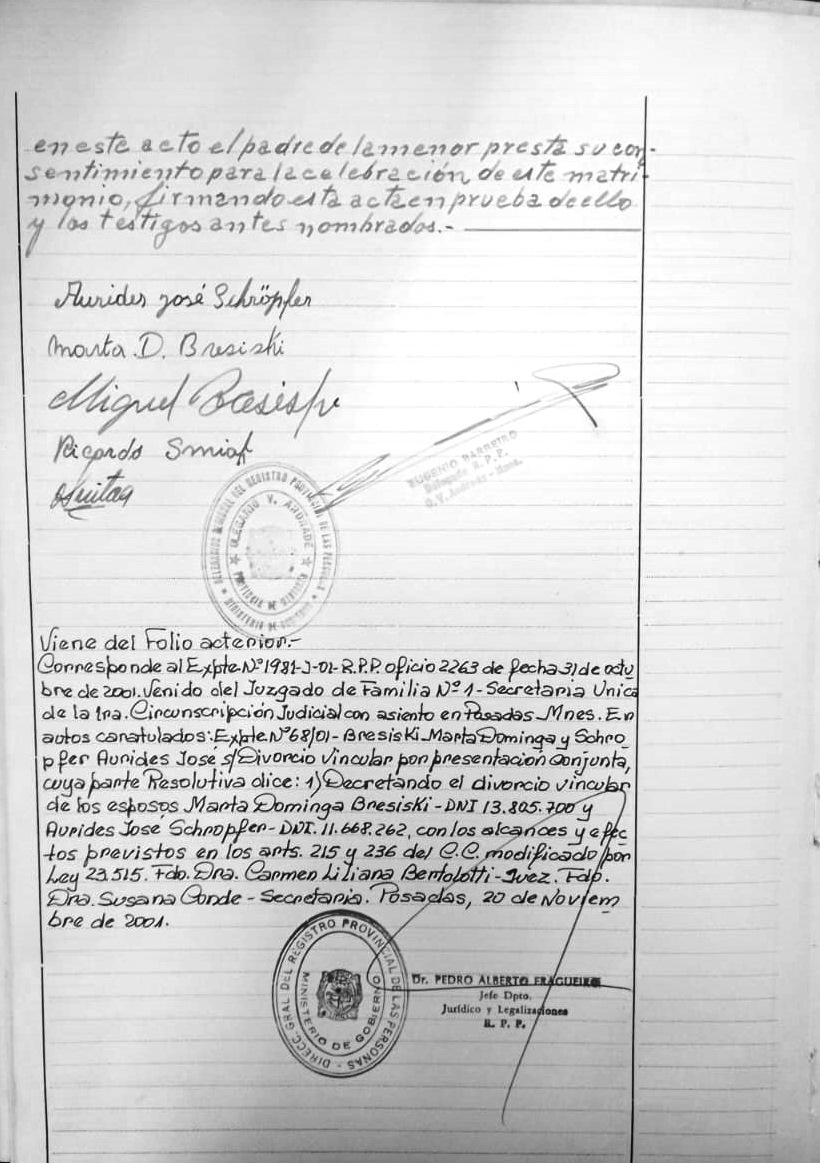 en este acto el padre de la menor presta su con-
sentimiento para la celebración de este matri-
monio, firmando esta acta en prueba de ello
y los testigos antes nombrados.-
Aurides José Schröpfer
Marta D. Bresiski
Miguel
Ricardo
EUGENIO BARREIRO
Delegado R. P. P.
G. V. Andrade - Mnes.
DELEGACION GENERAL DEL REGISTRO PROVINCIAL DE LAS PERSONAS
OLEGARIO V. ANDRADE
PROVINCIA DE MISIONES
MINISTERIO DE GOBIERNO
Viene del Folio acterior.-
Corresponde al Expte. Nº 1981-J-01-R.P.P. oficio 2263 de fecha 31 de octu
bre de 2001. Venido del Juzgado de Familia Nº 1 - Secretaria Unica
de la 1ra. Circunscripción Judicial con asiento en Posadas Mnes. En
autos caratulados: Expte Nº 68/01 - Bresiski Marta Dominga y Schro
pfer Aurides José s/Divorcio Vincular por presentación conjunta,
cuya parte Resolutiva dice: 1) Decretando el divorcio vincular
de los esposos Marta Dominga Bresiski - DNI 13.805.700 y
Aurides José Schropfer - DNI. 11.668.262, con los alcances y efec
tos previstos en los arts. 215 y 236 del C.C. modificado por
Ley 23.515. Fdo. Dra. Carmen Liliana Bertolotti - Juez. Fdo.
Dra. Susana Conde - Secretaria. Posadas, 20 de Noviem
bre de 2001.
DIRECC. GRAL DEL REGISTRO PROVINCIAL DE LAS PERSONAS
MINISTERIO DE GOBIERNO
Dr. PEDRO ALBERTO FRAGUEIRO
Jefe Dpto.
Jurídico y Legalizaciones
R. P. P.